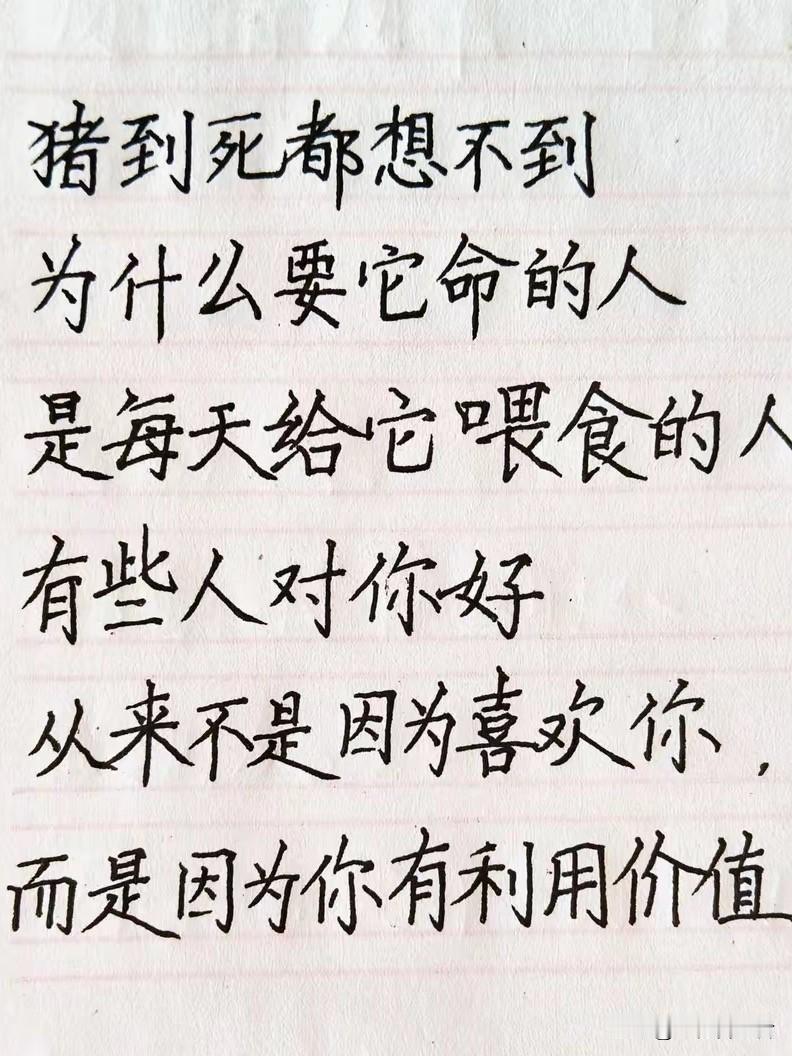 猪到死都想不到
为什么要它命的人
是每天给它喂食的人
有些人对你好
从来不是因为喜欢你，
而是因为你有利用价值